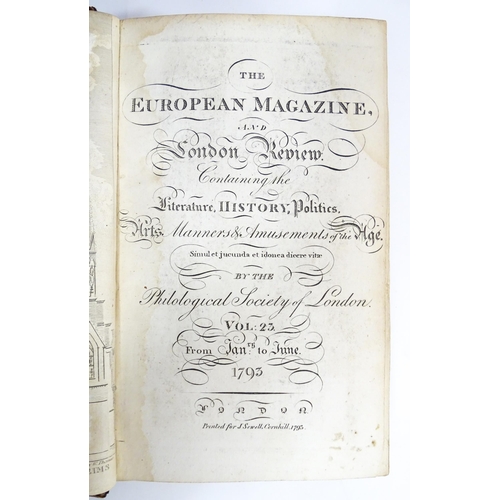 THE
EUROPEAN MAGAZINE,
AND
London Review.
Containing the
Literature, HISTORY, Politics,
Arts, Manners & Amusements of the Age.
Simul et jucunda et idonea dicere vitæ
BY THE
Philological Society of London.
VOL: 23
From Jan.ry to June.
1793
LONDON
Printed for J. Sewell, Cornhill, 1793.